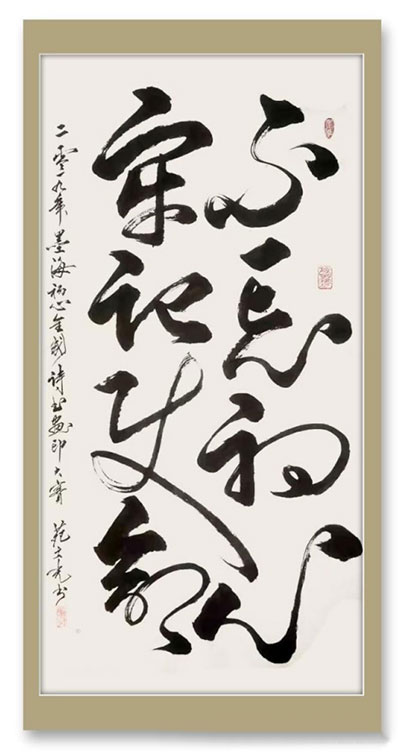 不忘初心
牢记使命
二零一九年墨海初心全国诗书画印大赛 范士光书